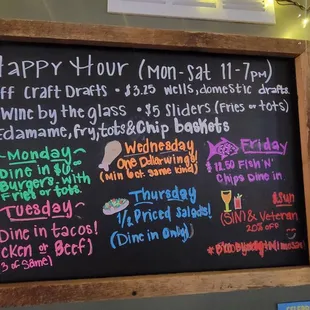 Happy Hour (Mon-Sat 11-7pm)
ff Craft Drafts • $3.25 wells, domestic drafts
Wine by the glass • $5 Sliders (Fries or tots)
Edamame, fry, tots & Chip baskets
Monday
Dine in
Burgers with
Fries or tots.
Tuesday
Dine in tacos!
icken or Beef)
3 of same)
Wednesday
One Dollar wings!
(Min 6 of same kind)
Thursday
1/2 Priced Salads!
(Dine in Only!)
Friday
$12.50 Fish 'N'
Chips Dine in
Sun
(SIN) & Veteran
20% off